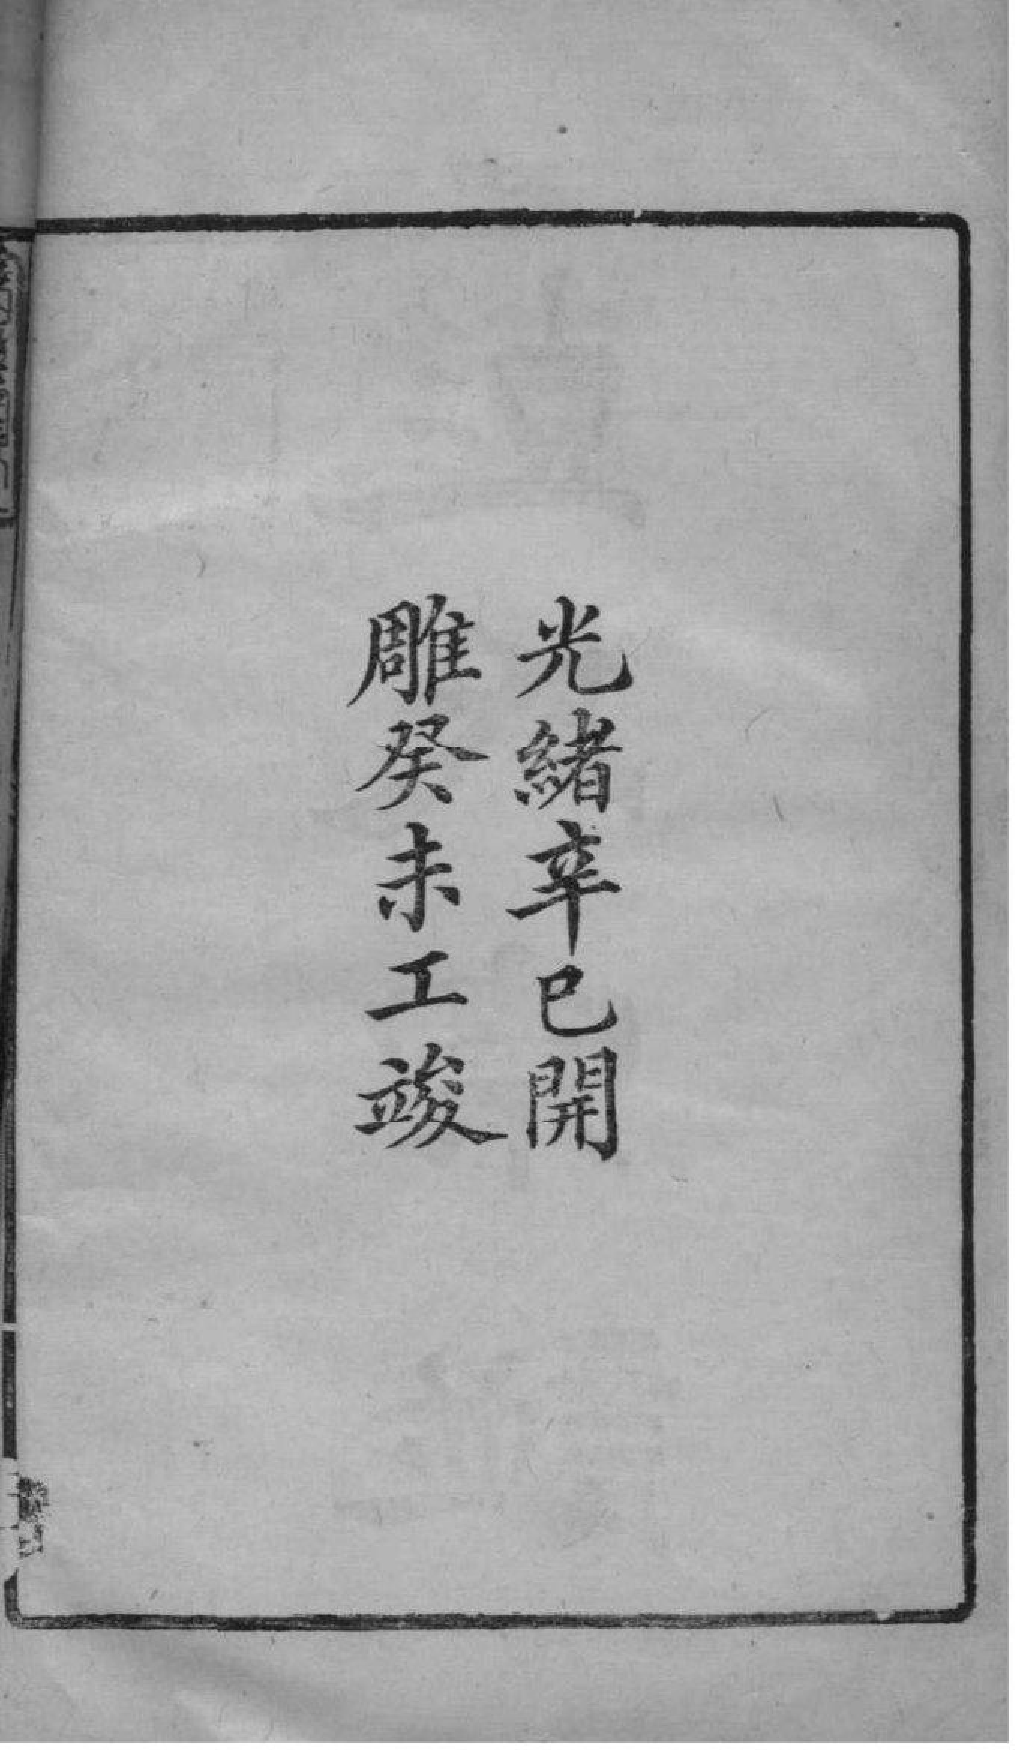 光緒辛巳開
雕癸未工竣